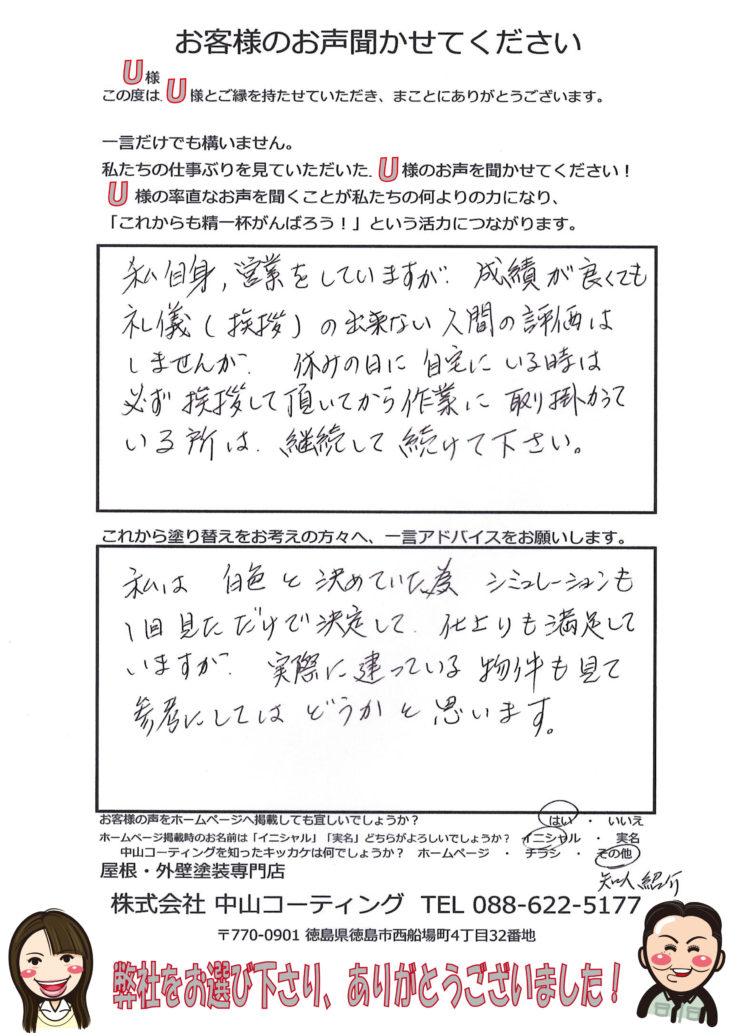 お客様のお声聞かせてください
U様
この度は.U様とご縁を持たせていただき、まことにありがとうございます。
一言だけでも構いません。
私たちの仕事ぶりを見ていただいた.U様のお声を聞かせてください！
U様の率直なお声を聞くことが私たちの何よりの力になり、
「これからも精一杯がんばろう！」という活力につながります。
私自身,営業をしていますが.成績が良くても
礼儀(挨拶)の出来ない人間の評価は
しませんが. 休みの日に自宅にいる時は
必ず挨拶して頂いてから作業に取り掛かって
いる所は.継続して続けて下さい。
これから塗り替えをお考えの方々へ、一言アドバイスをお願いします。
私は 白色と決めていた為 シミュレーションも
1回見ただけで決定して.仕上りも満足して
いますが. 実際に建っている物件も見て
参考にしてはどうかと思います。
お客様の声をホームページへ掲載しても宜しいでしょうか？ はい ・ いいえ
ホームページ掲載時のお名前は「イニシャル」「実名」どちらがよろしいでしょうか？ イニシャル ・ 実名
中山コーティングを知ったキッカケは何でしょうか？ ホームページ ・ チラシ ・ その他
知人紹介
屋根・外壁塗装専門店
株式会社 中山コーティング TEL 088-622-5177
〒770-0901 徳島県徳島市西船場町4丁目32番地
弊社をお選び下さり、ありがとうございました！